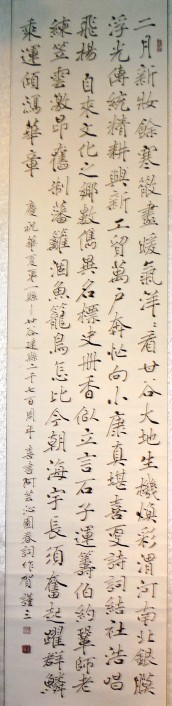 二月新妝餘寒散盡暖氣洋洋看甘谷大地生機煥彩渭河南北銀膜
浮光傳統精耕興新工貿萬戶奔忙向小康真堪喜更詩詞結社浩唱
飛揚 自來文化之鄉數儁異名標史冊香似立言石子運籌伯約鞏師老
練笠雲激昂舊制藩籬涸魚籠鳥怎比今朝海宇長須奮起躍群鱗
乘運傾瀉華章 慶祝華夏第一縣—甘谷建縣二千七百周年 喜書阿芸沁園春詞作賀 謹三